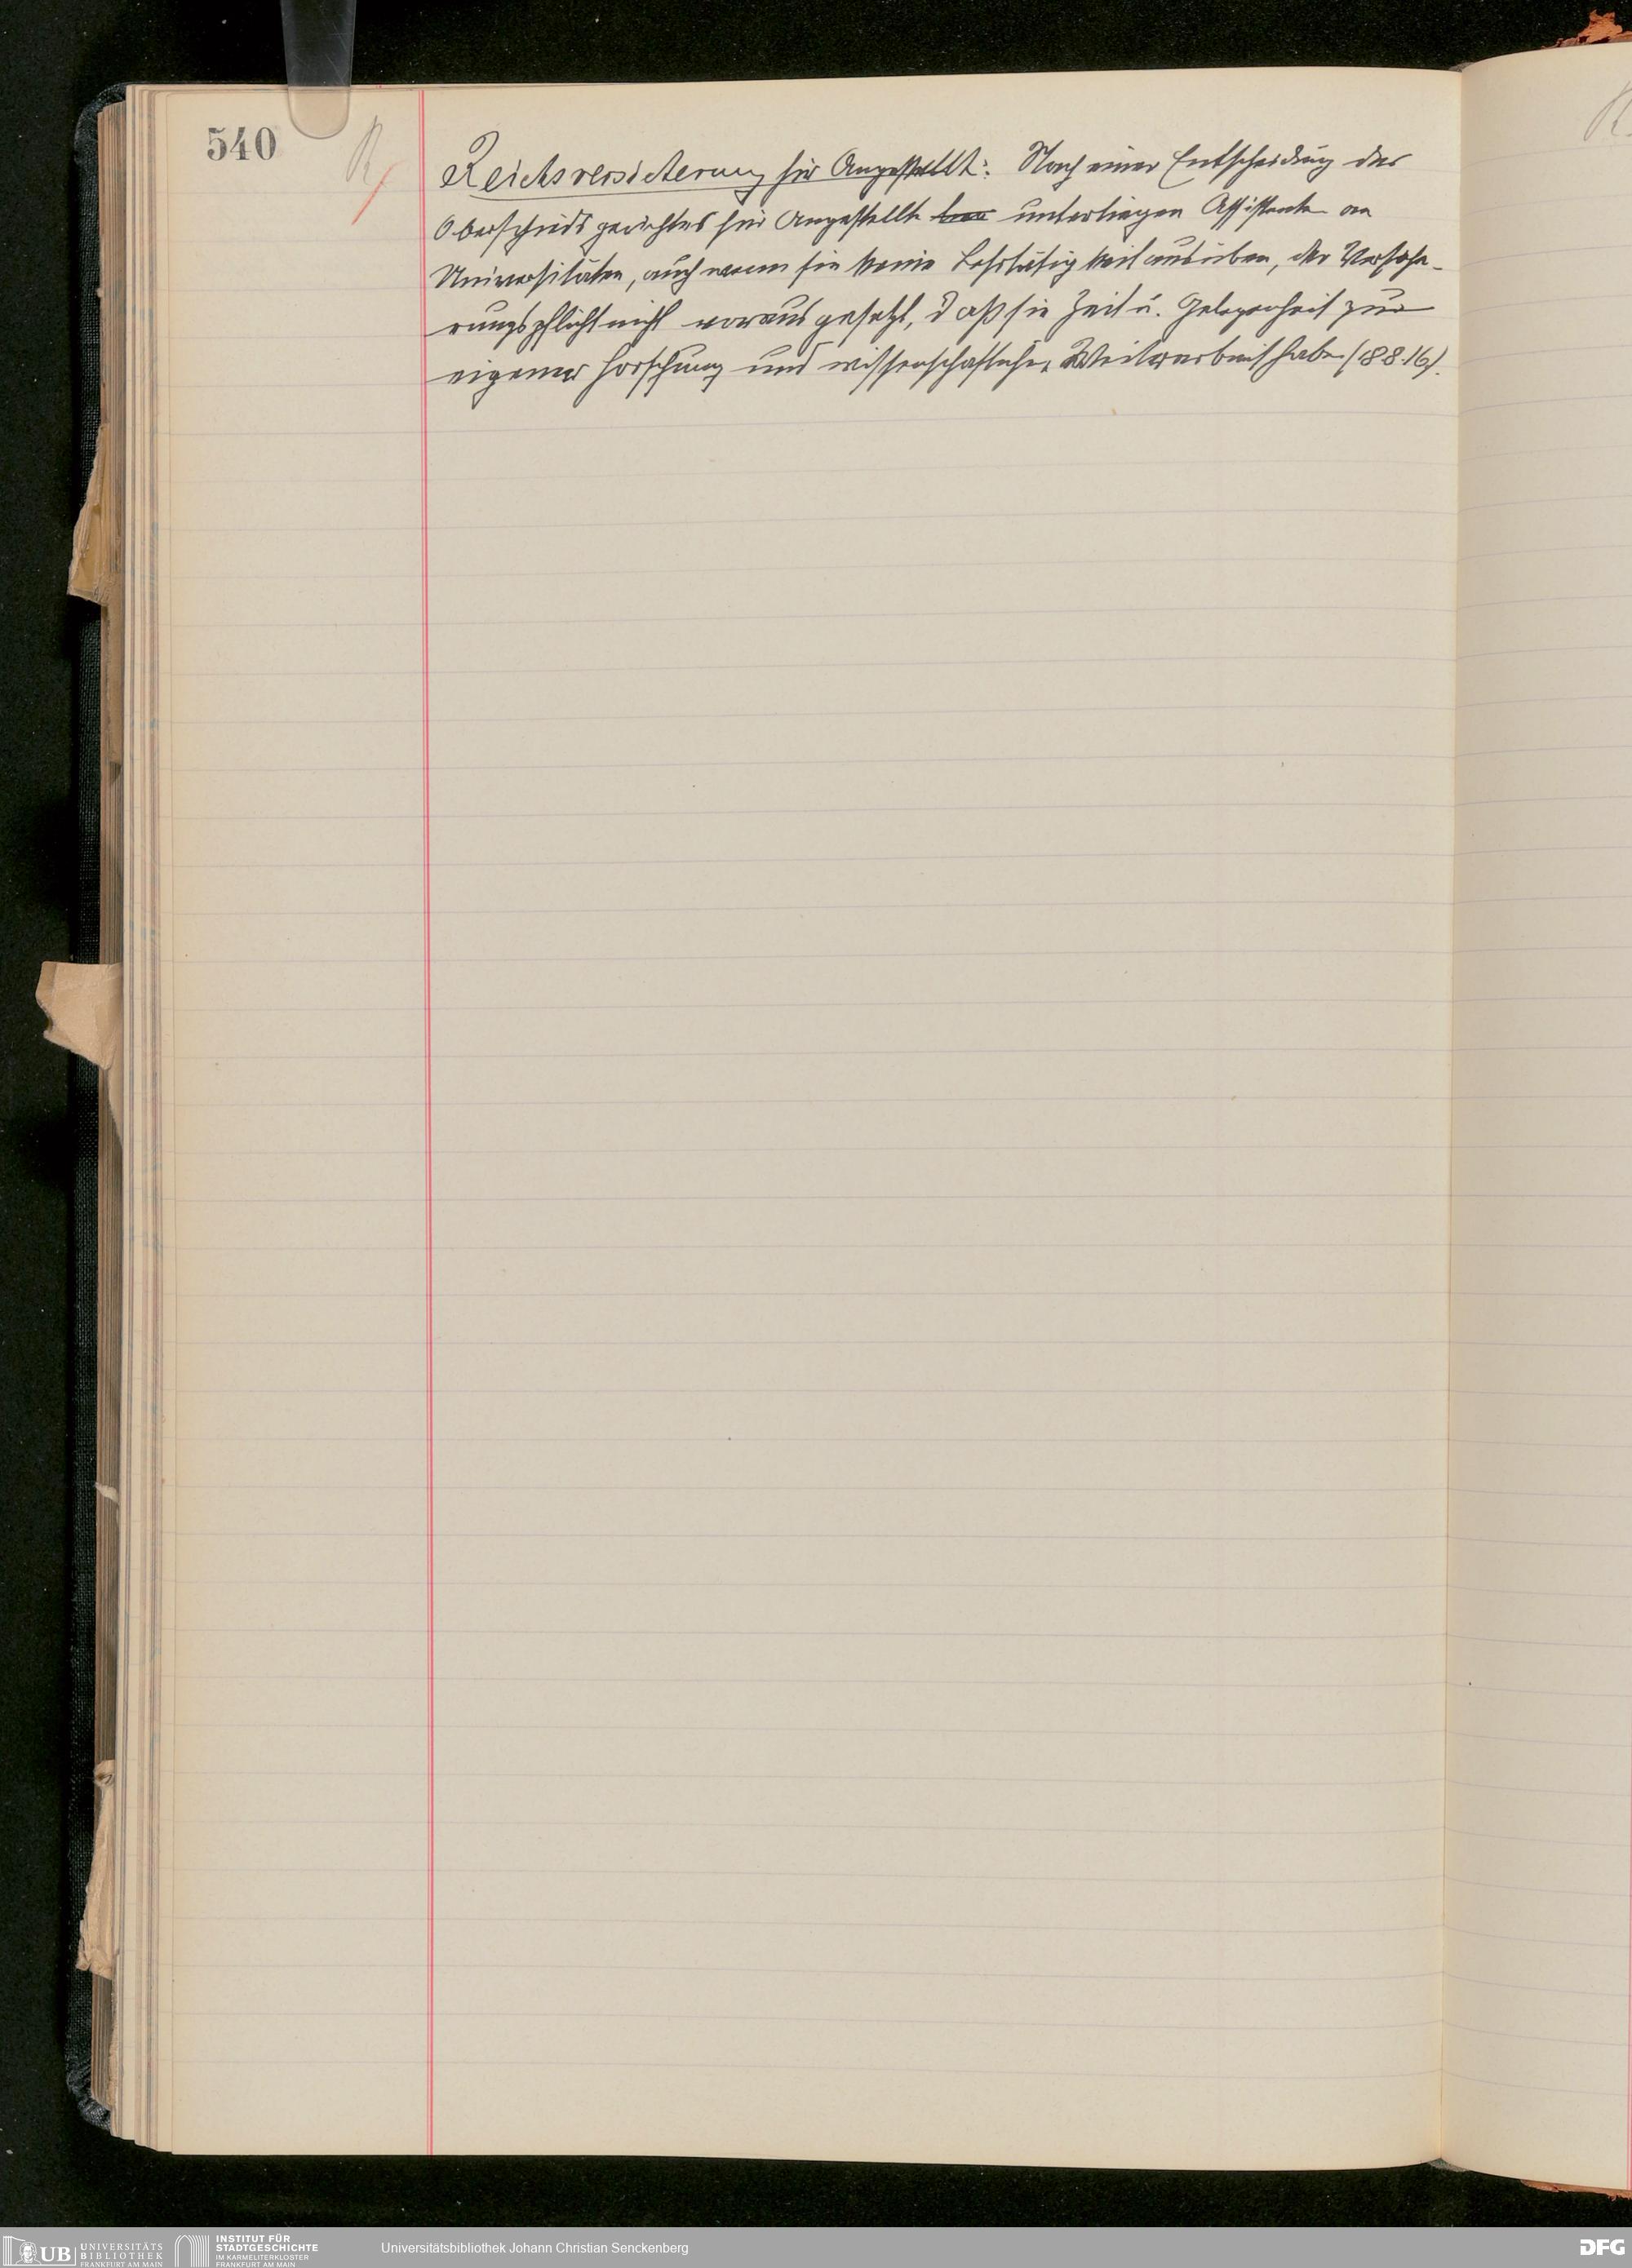 540
R
Reichsversicherung für Angestellte: Nach einer Entscheidung des
Oberschiedsgerichtes für Angestellte unterliegen Assistenten an
Universitäten, auch wenn sie keine Lehrtätigkeit ausüben, der Versiche-
rungspflicht nicht vorausgesetzt, daß sie Zeit u. Gelegenheit zur
eigener Forschung und wissenschaftlicher Weiterarbeit haben (8.8.16).
R
UB UNIVERSITÄTS
BIBLIOTHEK
FRANKFURT AM MAIN
INSTITUT FÜR
STADTGESCHICHTE
IM KARMELITERKLOSTER
FRANKFURT AM MAIN
Universitätsbibliothek Johann Christian Senckenberg
DFG